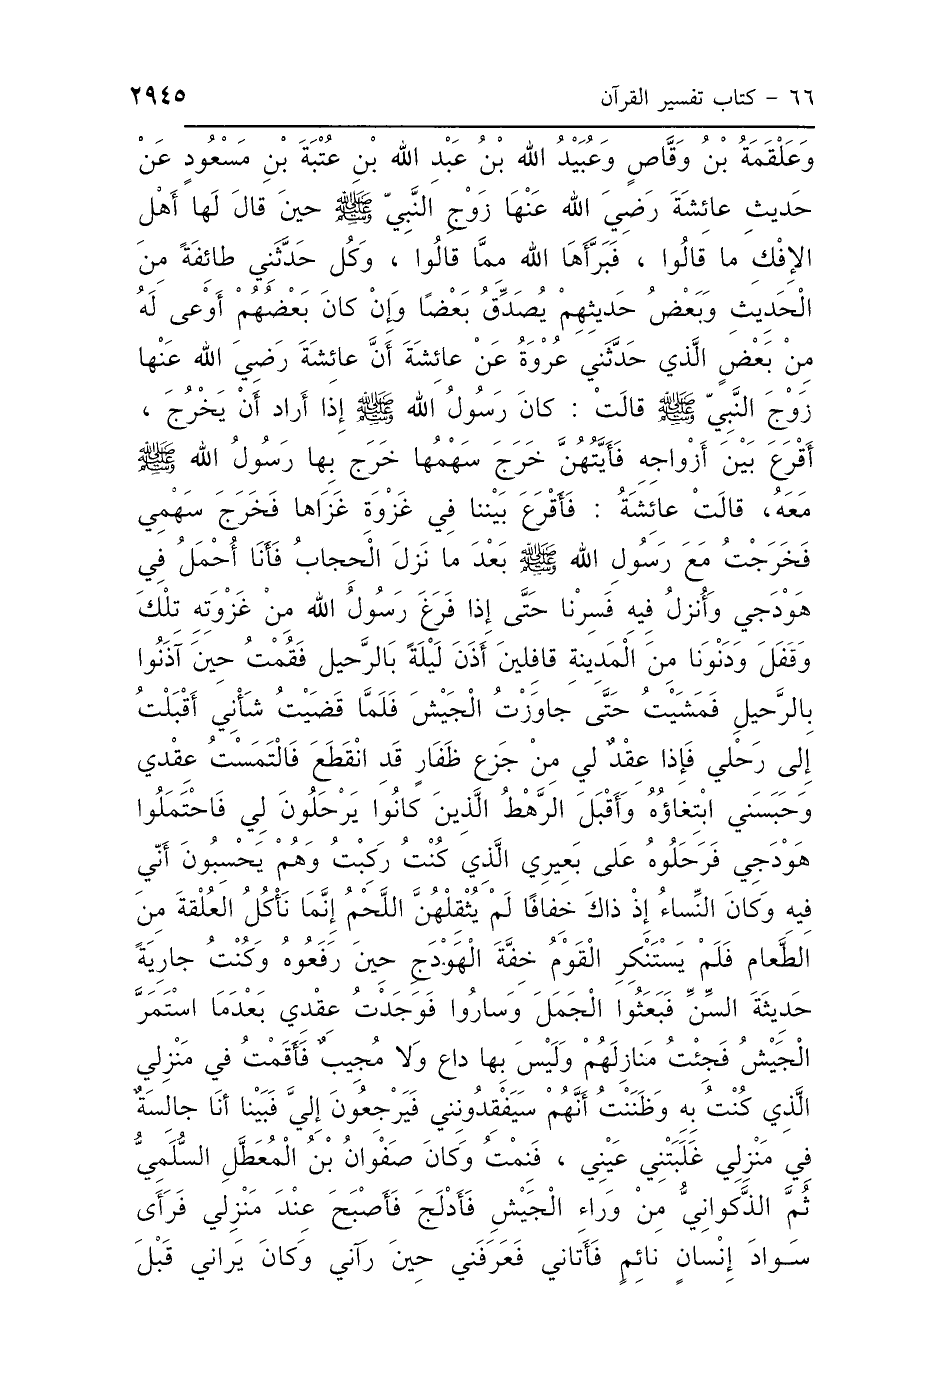 ٦٦ - كتاب تفسير القرآن ٢٩٤٥
وَعَلْقَمَةُ بْنُ وَقَّاصٍ وَعُبَيْدُ الله بْنُ عَبْدِ الله بْنِ عُتْبَةَ بْنِ مَسْعُودٍ عَنْ
حَدِيثِ عائشَةَ رَضِيَ الله عَنْهَا زَوْجِ النَّبِيّ ﷺ حينَ قالَ لَها أَهْلُ
الإفْكِ ما قالُوا ، فَبَرَّأَهَا الله ممَّا قالُوا ، وَكُل حَدَّثَنِي طائفَةً منَ
الْحَدِيثِ وَبَعْضُ حَدِيثِهِمْ يُصَدِّقُ بَعْضًا وَإنْ كانَ بَعْضُهُمْ أَوْعى لَهُ
مِنْ بَعْضٍ الَّذي حَدَّثَني عُرْوَةُ عَنْ عائشَةَ أَنَّ عائشَةَ رَضِيَ الله عَنْها
زَوْجَ النَّبِيّ ﷺ قالَتْ : كانَ رَسُولُ الله ﷺ إذا أَراد أَنْ يَخْرُجَ ،
أَقْرَعَ بَيْنَ أَزْواجِهِ فَأَيَّتُهُنَّ خَرَجَ سَهْمُها خَرَجَ بها رَسُولُ الله ﷺ
مَعَهُ، قالَتْ عائشَةُ : فَأَقْرَعَ بَيْننا في غَزْوَةٍ غَزَاها فَخَرَجَ سَهْمِي
فَخَرَجْتُ مَعَ رَسُولِ الله ﷺ بَعْدَ ما نَزلَ الْحجابُ فَأَنَا أُحْمَلُ فِي
هَوْدَجي وَأُنزلُ فيهِ فَسِرْنا حَتَّى إذا فَرَغَ رَسُولُ الله منْ غَزْوَتِهِ تلْكَ
وَقَفَلَ وَدَنَوْنَا مِنَ الْمَدينةِ قافلينَ أَذَنَ لَيْلَةً بَالرَّحِيلِ فَقُمْتُ حينَ آذَنُوا
بِالرَّحِيلِ فَمَشَيْتُ حَتَّى جاوَزْتُ الْجَيْشَ فَلَمَّا قَضَيْتُ شَأْنِي أَقْبَلْتُ
إلى رَحْلي فَإذا عقْدٌ لي منْ جَزعِ ظَفَارِ قَد انْقَطَعَ فَالْتَمَسْتُ عِقْدي
وَحَبَسَني ابْتغاؤُهُ وَأَقْبَلَ الرَّهْطُ الَّذينَ كانُوا يَرْحَلُونَ لي فَاحْتَمَلُوا
هَوْدَجي فَرَحَلُوهُ عَلى بَعيري الَّذي كُنْتُ رَكِبْتُ وَهُمْ يَحْسِبُونَ أَنّي
فيهِ وَكانَ النِّساءُ إذْ ذاكَ خفافًا لَمْ يُثْقِلْهُنَّ اللَّحْمُ إنَّما نَأْكُلُ العُلْقةَ منَ
الطَّعامِ فَلَمْ يَسْتَنْكِرِ الْقَوْمُ خفَّةَ الْهَوْدَجِ حينَ رَفَعُوه وَكُنْتُ جاريَةً
حَديثَةَ السِّنِّ فَبَعَثُوا الْجَمَلَ وَساروا فَوَجَدْتُ عقْدِي بَعْدَمَا استَمَرَّ
الْجَيْشُ فَجِئْتُ مَنَازلَهُمْ وَلَيْسَ بها داعٍ وَلا مُجيبٌ فَأَقَمْتُ في مَنْزلي
الَّذي كُنْتُ بِهِ وَظَنَنْتُ أَنَّهُمْ سَيَفْقِدُونني فَيَرْجِعُونَ إليَّ فَبَيْنا أَنَا جالسَةٌ
فِي مَنْزلي غَلَبَتْني عَيْني ، فَنِمْتُ وَكانَ صَفْوانُ بْنُ الْمُعَطَّلِ السُّلَمِيُّ
ثُمَّ الذَّكوانيُّ مِنْ وَراءِ الْجَيْشِ فَأَدْلَجَ فَأَصْبَحَ عِنْدَ مَنْزلي فَرَأَى
سَوادَ إنْسانٍ نائِمٍ فَأَتاني فَعَرَفَني حِينَ رآني وَكانَ يَراني قَبْلَ